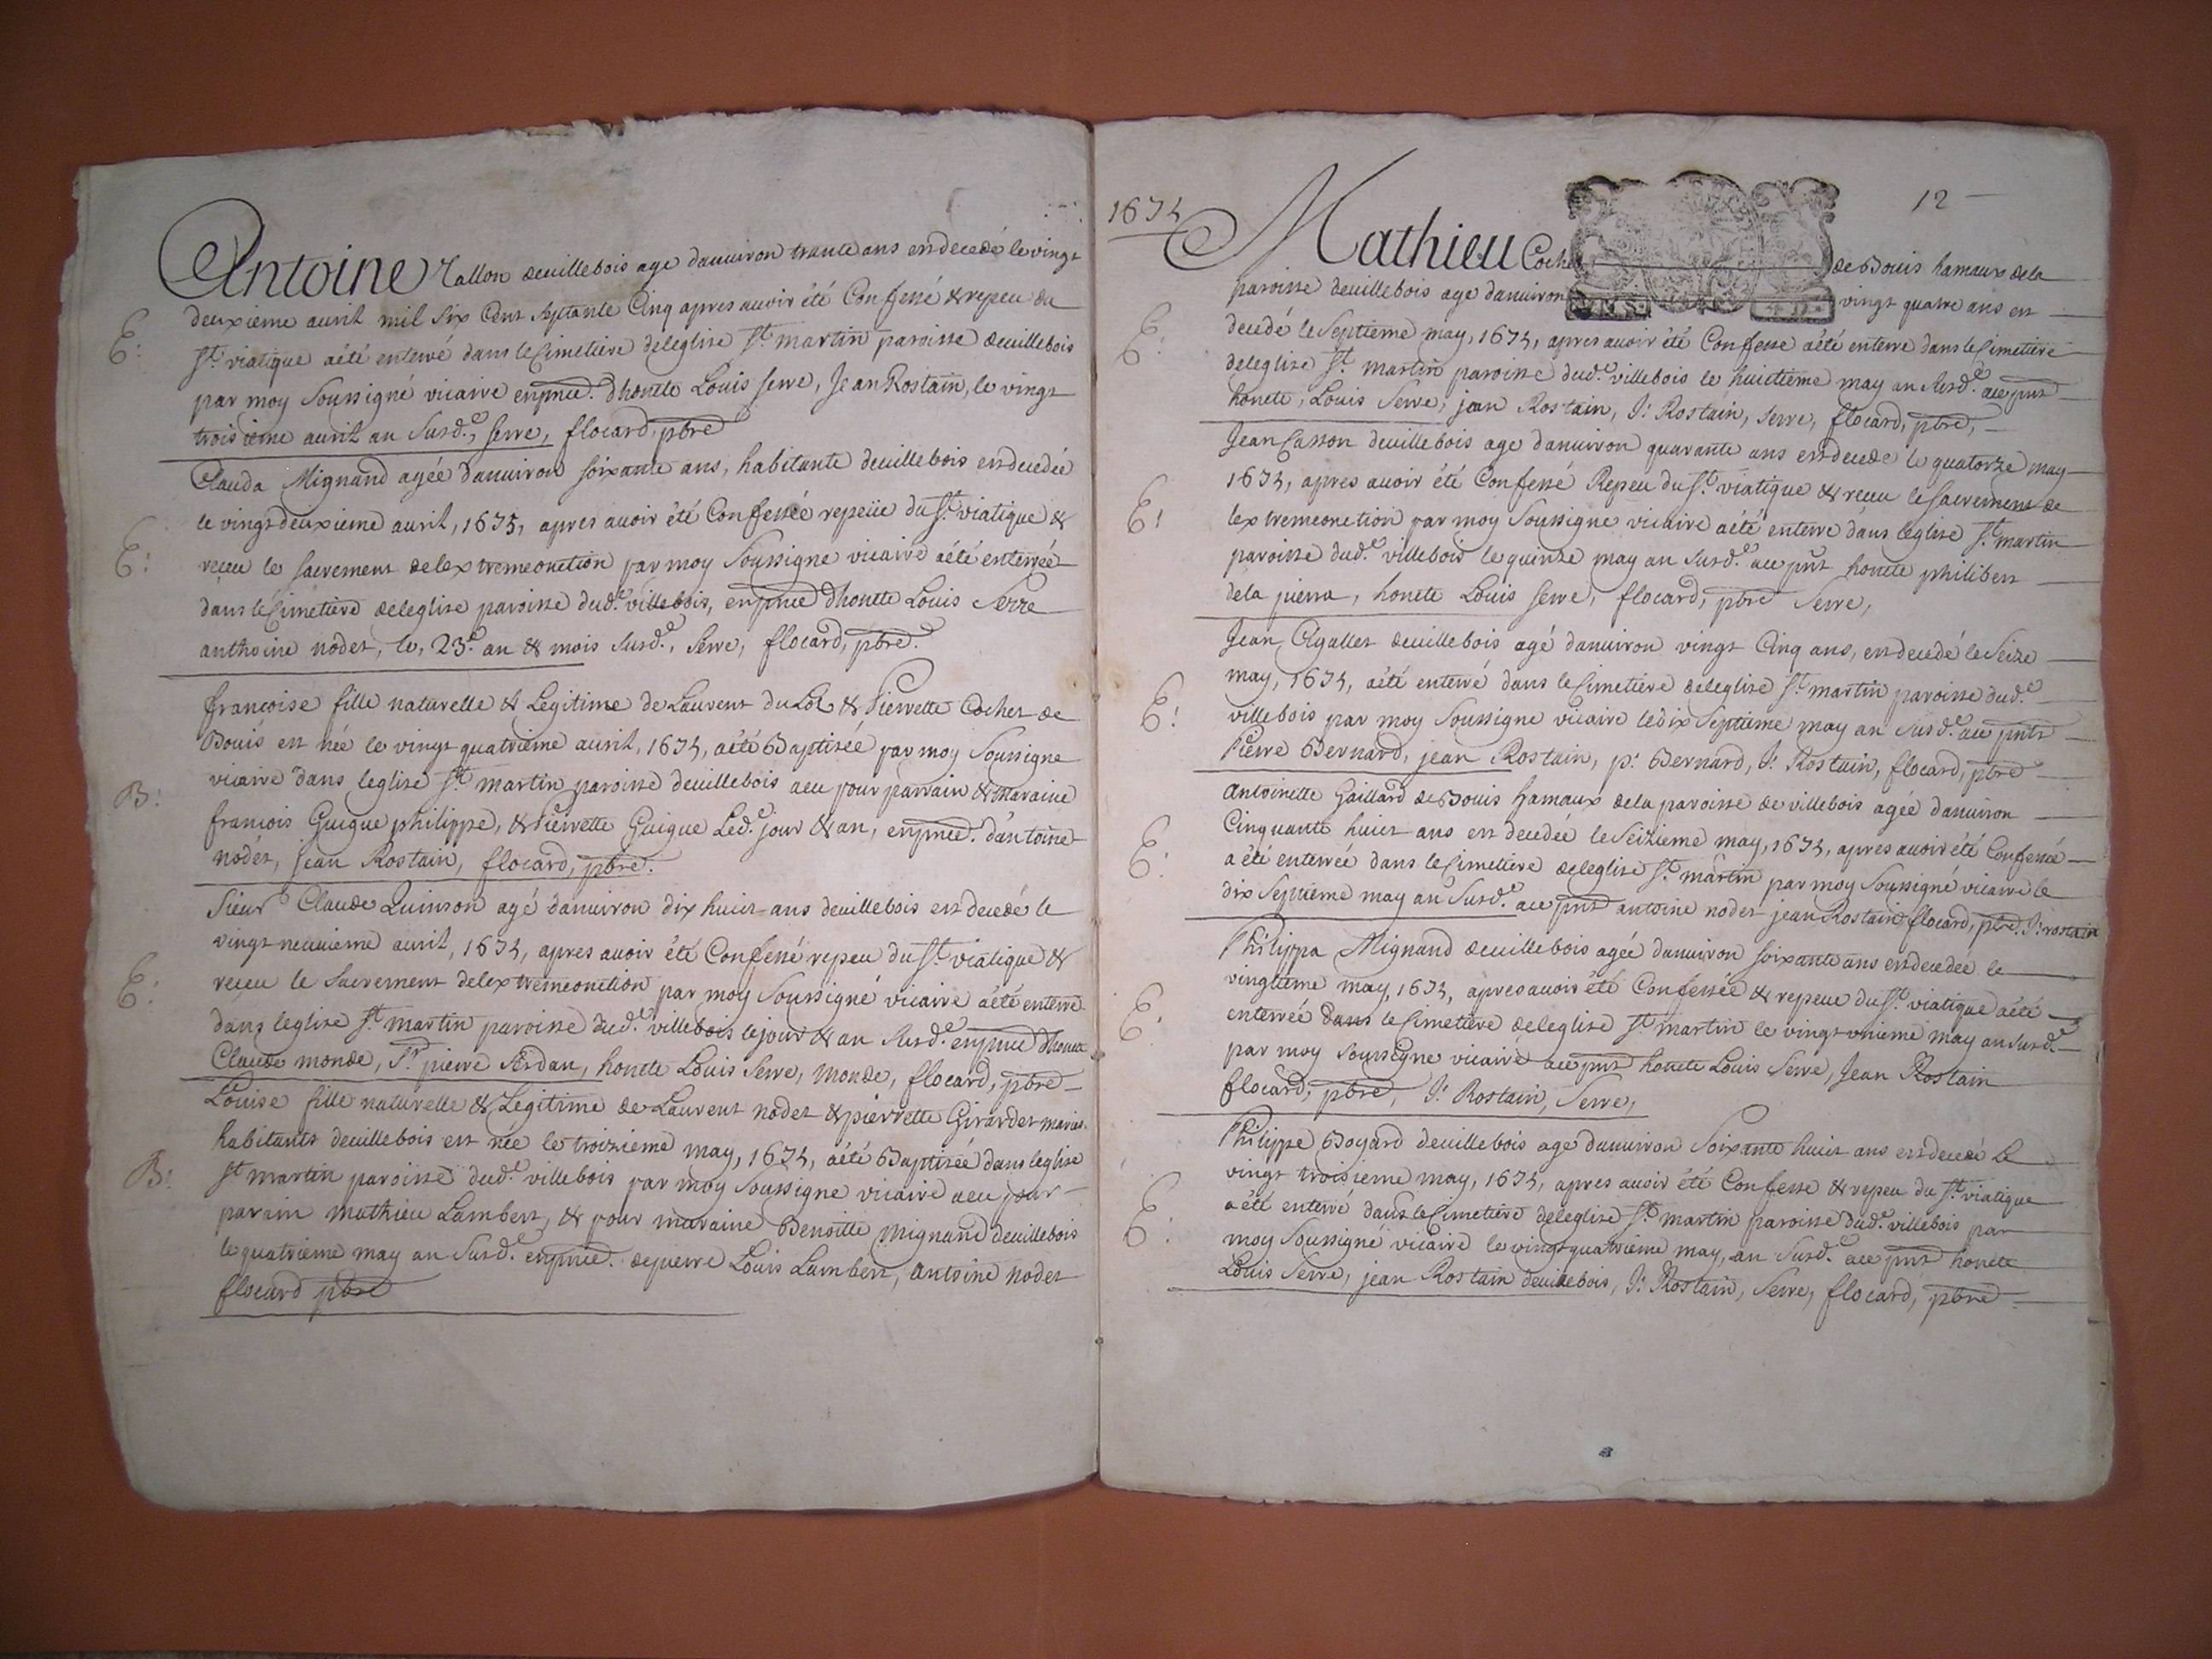 Antoine Tallon deuillebois age danuiron trante ans est decedé le vingt
deuxieme auril mil six Cent septante Cinq apres auoir été Confessé & repeu du
E: St. viatique a été enterré dans le Cimetiere deleglise St. martin paroisse deuillebois
par moy Soussigné vicaire enpnce. dhonete Louis serre, Jean Rostain, le vingt
troisieme auril an susd.e, serre, flocard, pbre
Clauda Mignand agée danuiron soixante ans, habitante deuillebois est decedée
le vingt deuxieme auril, 1675, apres auoir été Confessée repeüe du St. viatique &
E: reçeu le sacrement delextremeonction par moy Soussigne vicaire a été enterrée
dans le Cimetiere deleglise paroisse dud.e villebois, enpnce dhonete Louis Serre
anthoine nodet, le, 23.e an & mois susd.e, Serre, flocard, pbre.
francoise fille naturelle & Legitime de Laurent du Lot & Pierrette Cochet de
Bouis est née le vingt quatrieme auril, 1675, a été Baptisée par moy Soussigne
B: vicaire dans leglise St. martin paroisse deuillebois a eu pour parrain & maraine
francois Guigue philippe, & Pierrette Guigue Led.e jour & an, enpnce. dantoine
nodet, jean Rostain, flocard, pbre.
Sieur Claude Quinson agé danuiron dix huict ans deuillebois est decedé le
vingt neuuieme auril, 1675, apres auoir été Confessé repeu du St. viatique &
E: reçeu le sacrement delextremeonction par moy Soussigné vicaire a été enterré
dans leglise St. martin paroisse dud.e villebois le jour & an susd.e enpnce dhonete
Claude monde, Sr. pierre Ardan, honete Louis Serre, monde, flocard, pbre
Louise fille naturelle & Legitime de Laurent nodet & pierrette Girardet maries
habitants deuillebois est née le troizieme may, 1675, a été Baptisée dans leglise
B: St martin paroisse dud.e villebois par moy Soussigne vicaire a eu pour
parain mathieu Lambert, & pour maraine Benoitte mignand deuillebois
le quatrieme may an susd.e enpnce. depierre Louis Lambert, antoine nodet
flocard pbre
1675
12
Mathieu Cochet de Bouis hamaux dela
paroisse deuillebois age danuiron vingt quatre ans est
E: decedé le septieme may, 1675, apres auoir été Confesse a été enterre dans le Cimetiere
deleglise St. martin paroisse dud.e villebois le huictieme may an susd.e ace pnt
honete, Louis Serre, jean Rostain, J: Rostain, serre, flocard, pbre,
Jean Casson deuillebois age danuiron quarante ans est decede le quatorze may
1675, apres auoir été Confessé Repeu du St. viatique & receu le sacrement de
E: lextremeonction par moy Soussigne vicaire a été enterre dans leglise St. martin
paroisse dud.e villebois le quinze may an susd.e ace pnt honete philibert
dela pierra, honete Louis serre, flocard, pbre Serre,
Jean Agallet deuillebois agé danuiron vingt Cinq ans, est decedé le Seize
may, 1675, a été enterré dans le Cimetiere deleglise St. martin paroisse dud.e
E: villebois par moy Soussigne vicaire le dix septieme may an susd.e ace pnts
Pierre Bernard, jean Rostain, p: Bernard, J: Rostain, flocard, pbre
Antoinette Gaillard de Bouis hamaux dela paroisse de villebois agée danuiron
Cinquante huict ans est decedée le seizieme may, 1675, apres auoir été Confessée
E: a été enterrée dans le Cimetiere deleglise St. martin par moy Soussigné vicaire le
dix Septieme may an susd.e ace pnt antoine nodet jean Rostain flocard, pbre. J: rostain
Philippa Mignand deuillebois agée danuiron soixante ans est decedée le
vingtieme may, 1675, apres auoir été Confessée & repeue du St. viatique a été
E: enterrée dans le Cimetiere deleglise St. martin le vingt vnieme may an susd.e
par moy soussigne vicaire ace pnt honete Louis Serre, Jean Rostain
flocard, pbre, J: Rostain, Serre,
Philippe Bogard deuillebois age danuiron Soixante huict ans est decedé Le
vingt troisieme may, 1675, apres auoir été Confesse & repeu du St. viatique
E: a été enterré dans le Cimetiere deleglise St. martin paroisse dud.e villebois par
moy Soussigné vicaire le vingt quatrieme may, an susd.e ace pnt honete
Louis Serre, jean Rostain deuillebois, J: Rostain, Serre, flocard, pbre